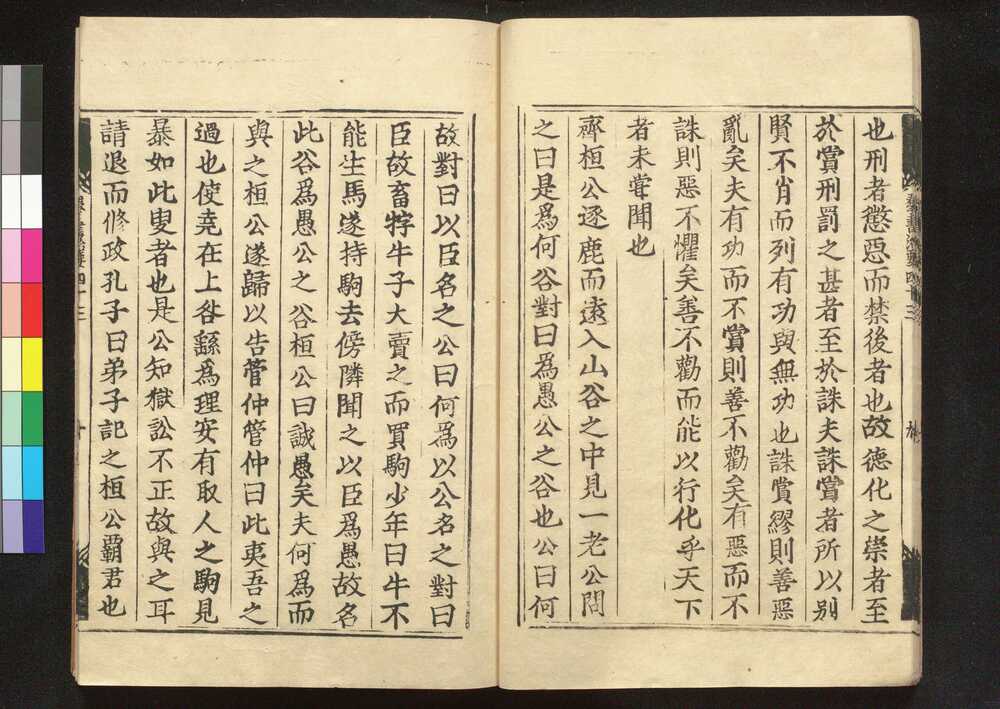 也刑者懲惡而禁後者也故德化之崇者至
於賞刑罰之甚者至於誅夫誅賞者所以别
賢不肖而列有功與無功也誅賞繆則善惡
亂矣夫有功而不賞則善不勸矣有惡而不
誅則惡不懼矣善不勸而能以行化乎天下
者未甞聞也
齊桓公逐鹿而遠入山谷之中見一老公問
之曰是爲何谷對曰爲愚公之谷也公曰何
故對曰以臣名之公曰何爲以公名之對曰
臣故畜牸牛子大賣之而買駒少年曰牛不
能生馬遂持駒去傍隣聞之以臣爲愚故名
此谷爲愚公之谷桓公曰誠愚矣夫何爲而
與之桓公遂歸以告管仲管仲曰此夷吾之
過也使堯在上咎繇爲理安有取人之駒見
暴如此叟者也是公知獄訟不正故與之耳
請退而修政孔子曰弟子記之桓公霸君也
群書治要四十三
十